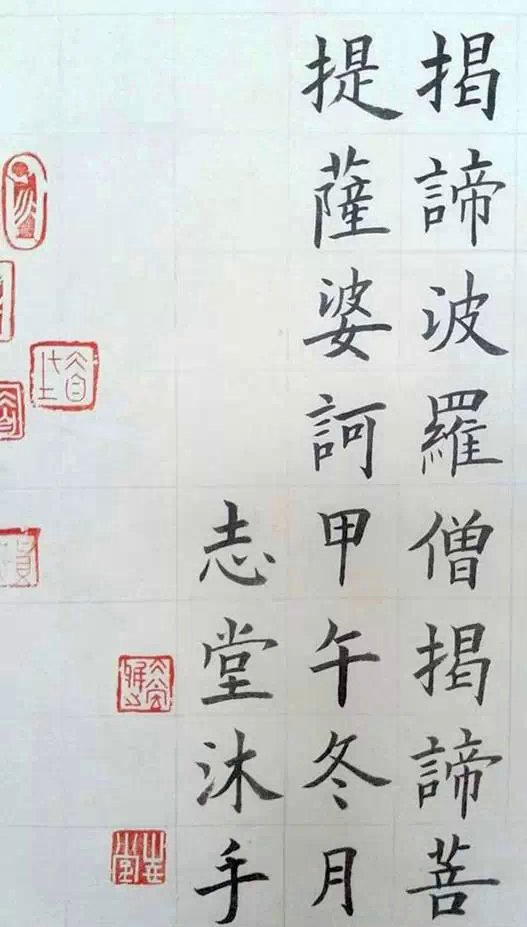 揭諦波羅僧揭諦菩
提薩婆訶甲午冬月
志堂沐手